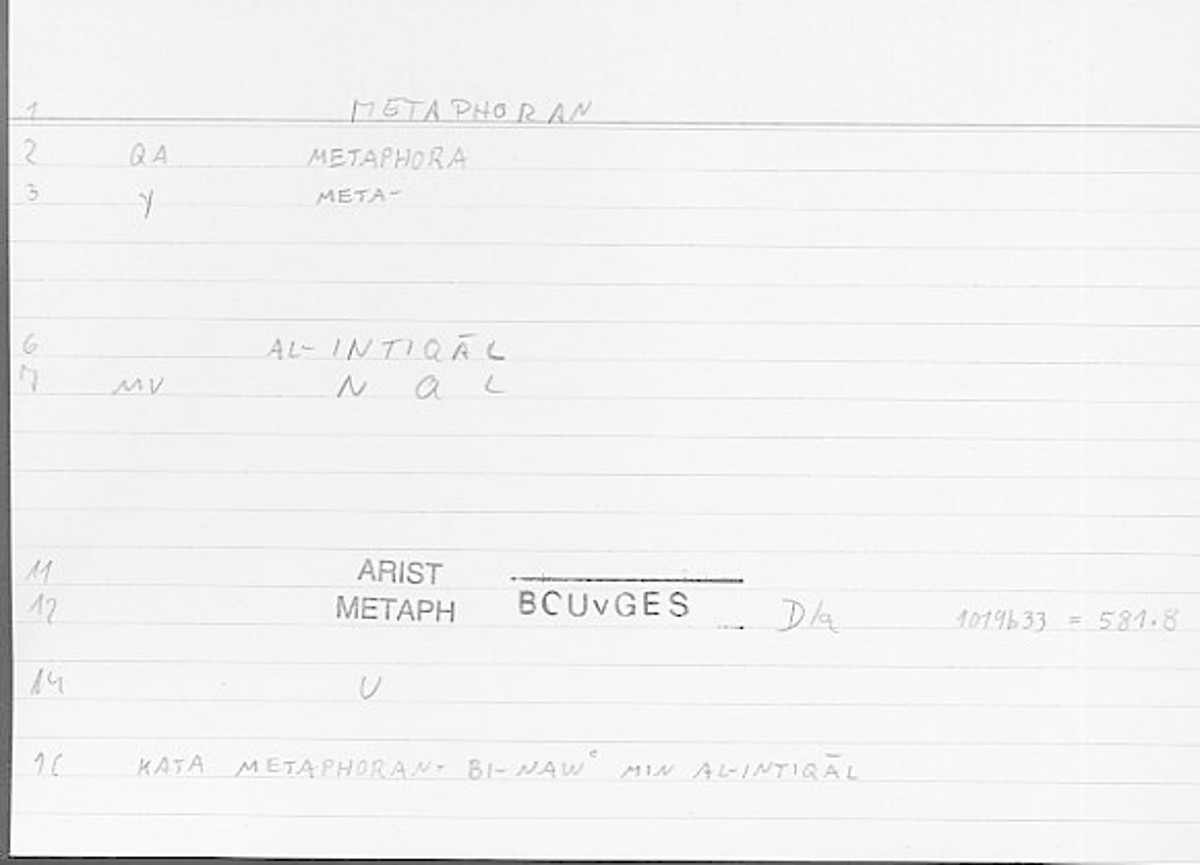 1 METAPHORAN
2 QA METAPHORA
3 γ META-
6 AL-INTIQĀL
7 MV N Q L
11 ARIST
12 METAPH BCUvGES D/a 1019b33 = 581.8
14 U
16 KATA METAPHORAN- BI-NAWʿ MIN AL-INTIQĀL